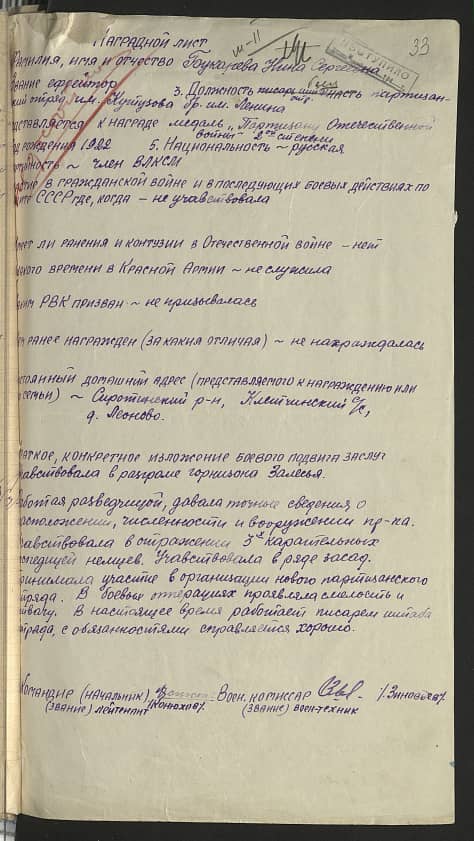 НАГРАДНОЙ ЛИСТ
33
ПОСТУПИЛО
Фамилия, имя и отчество Нина Сергеевна
Звание ефрейтор 3. Должность писарь часть партизан-
ский отряд им. Кутузова бр. им. Ленина
едставляется к награде медаль „Партизану Отечественной
войны" 2ой степени
од рождения 1922 5. Национальность ~ русская
ртийность ~ член ВЛКСМ
астие в гражданской войне и в последующих боевых действиях по
ите СССР где, когда – не учавствовала
меет ли ранения и контузии в Отечественной войне – нет
акого времени в Красной Армии ~ не служила
аким РВК призван ~ не призывалась
ем ранее награжден (за какия отличая) ~ не награждалась
остоянный домашний адрес (представляемого к награждению или
о семьи) ~ Сиротинский р-н, с/с,
д. Леоново.
раткое, конкретное изложение боевого подвига заслуг
чавствовала в разгроме горнизона Залесья.
Работая разведчицой, давала точные сведения о
расположении, численности и вооружении пр-ка.
чавствовала в отражении 3х карательных
кспедицей немцев. Учавствовала в ряде засад.
ринимала участие в организации нового партизанского
тряда. В боевых операциях проявляла смелость и
твагу. В настоящее время работает писарем штаба
тряда, с обязанностями справляется хорошо.
Командир (начальник) Воен. комиссар
(звание) лейтенант /Конюхов/. (звание) воен-техник